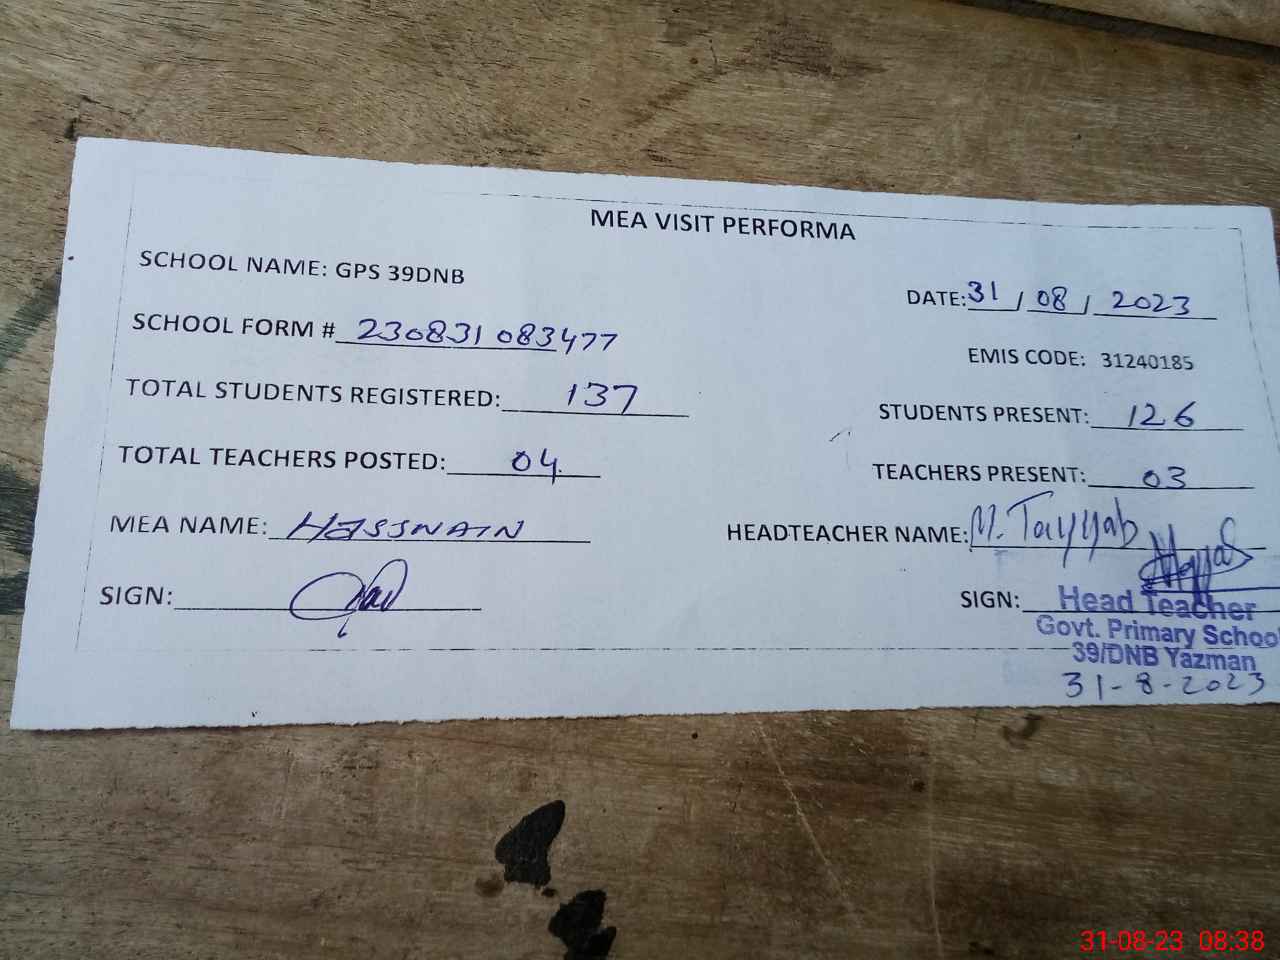 MEA VISIT PERFORMA
SCHOOL NAME: GPS 39DNB
DATE: 31 / 08 / 2023
SCHOOL FORM # 230831083477
EMIS CODE: 31240185
TOTAL STUDENTS REGISTERED: 137
STUDENTS PRESENT: 126
TOTAL TEACHERS POSTED: 04
TEACHERS PRESENT: 03
MEA NAME: HASSNAIN
HEADTEACHER NAME: M. Tayyab
SIGN:
SIGN:
Head Teacher
Govt. Primary School
39/DNB Yazman
31-8-2023
31-08-23 08:38